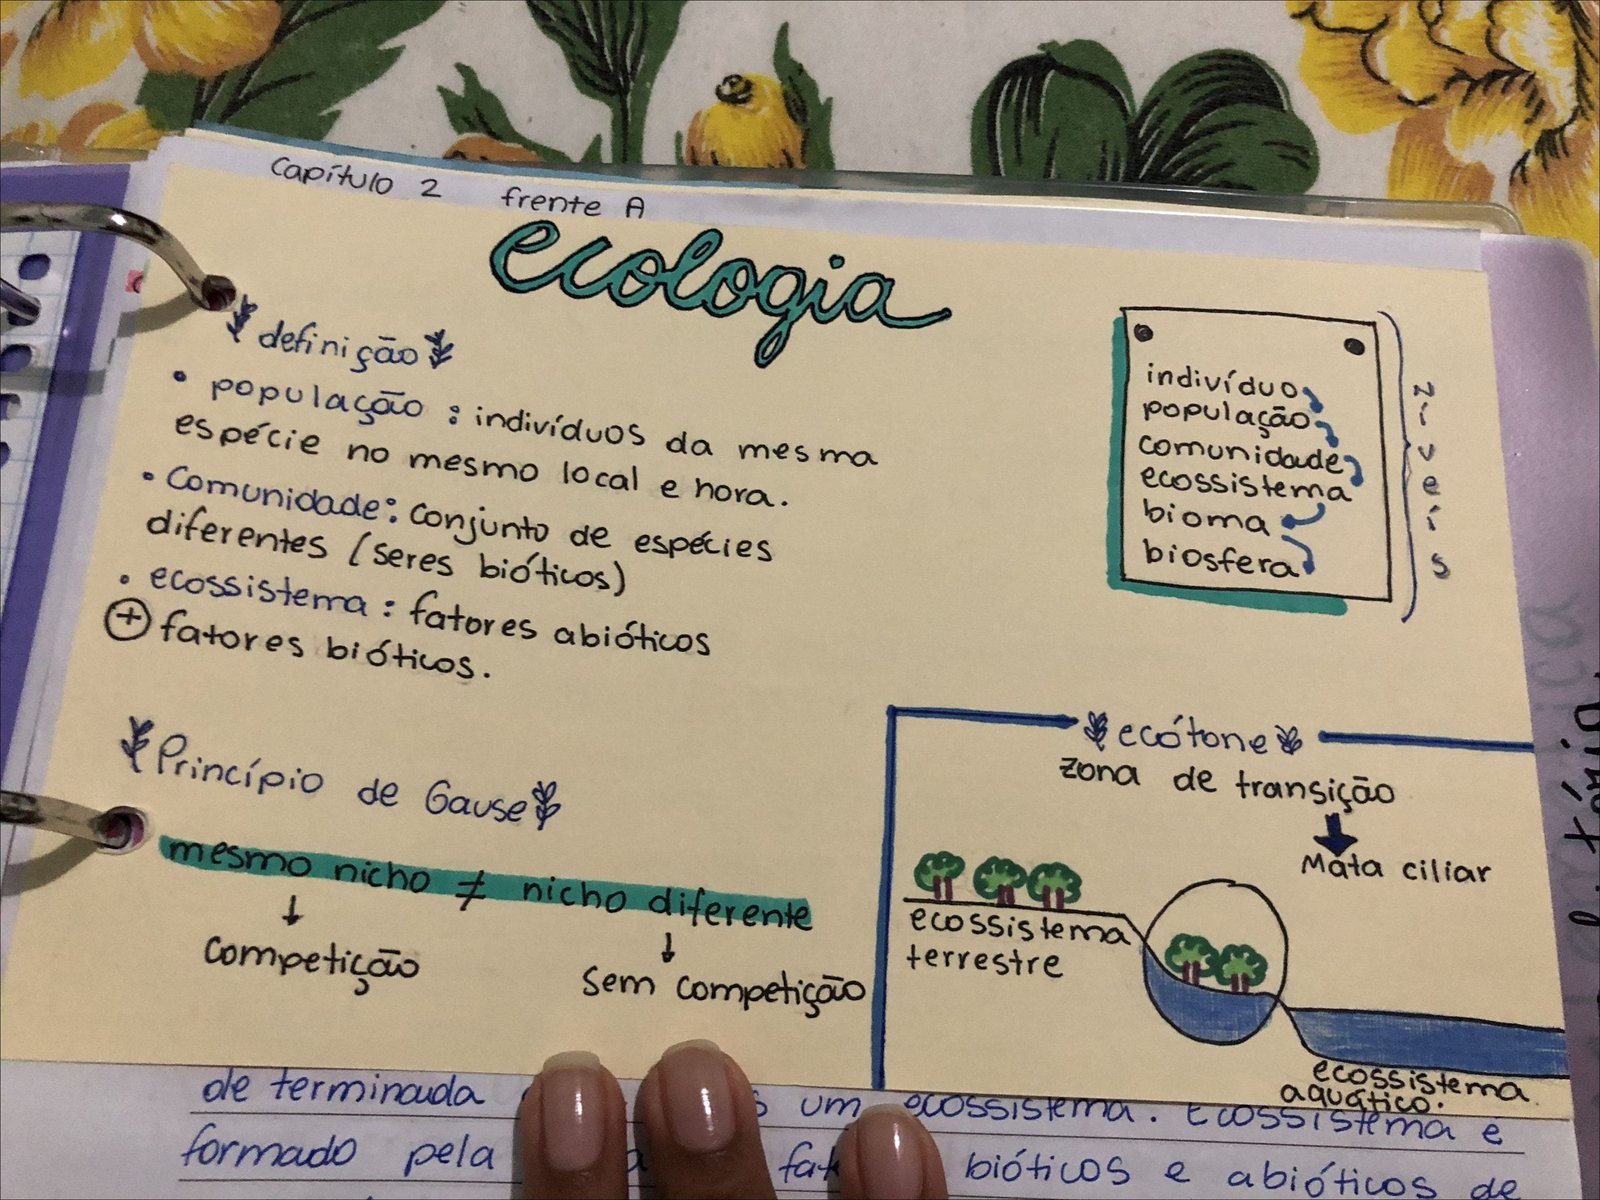 Capítulo 2 frente A
ecologia
definição
• população : indivíduos da mesma
espécie no mesmo local e hora.
• Comunidade: conjunto de espécies
diferentes (seres bióticos)
• ecossistema : fatores abióticos
+ fatores bióticos.
indivíduo
população
comunidade
ecossistema
bioma
biosfera
níveis
Princípio de Gause
mesmo nicho ≠ nicho diferente
↓ ↓
Competição Sem competição
ecótone
zona de transição
Mata ciliar
ecossistema
terrestre
ecossistema
aquático.
de terminada um ecossistema. Ecossistema e
formado pela bióticos e abióticos de